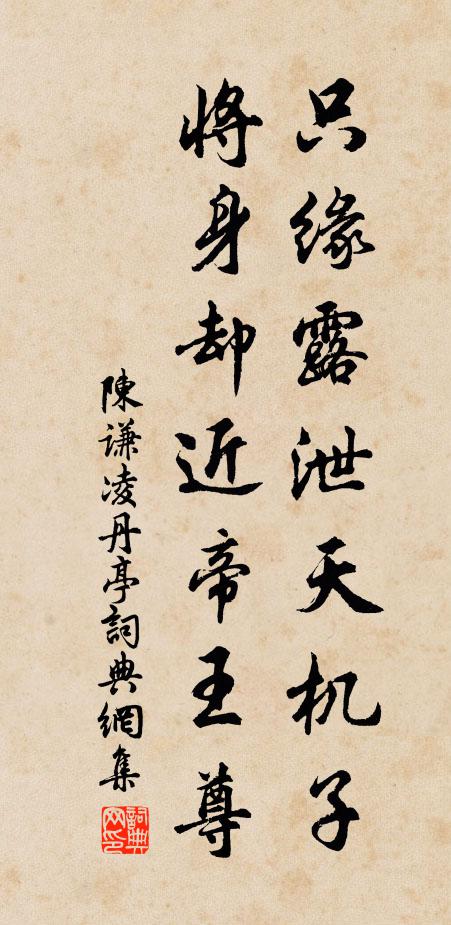 只缘露泄天机子
将身却近帝王尊
陳謙凌丹亭詞典網集
詞典网印